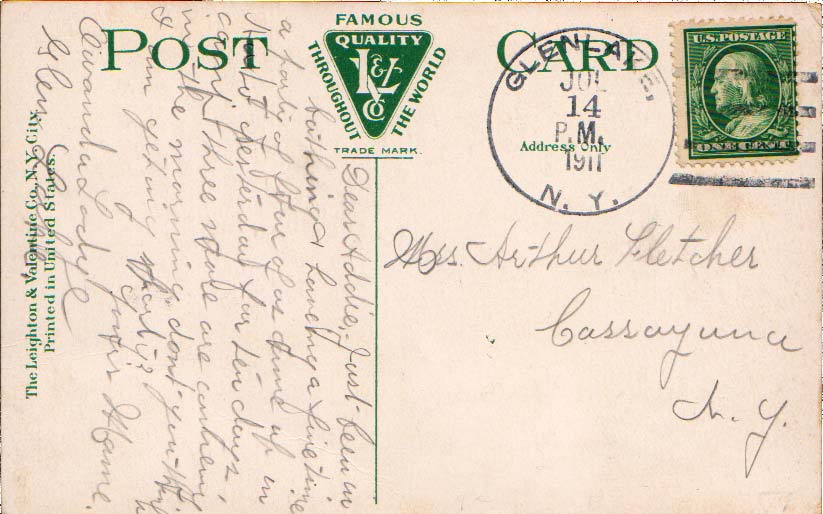 POST CARD
FAMOUS
QUALITY
THROUGHOUT THE WORLD
L&V
Co
TRADE MARK.
Address only
GLENLAKE,
JUL
14
P.M.
1911
N. Y.
U.S. POSTAGE
ONE CENT
Mrs. Arthur Fletcher
Cossayuna
N. Y.
Dear Addie, Just been in
bathing & having a fine time
a party of four of us came up in
Auto yesterday for ten days.
count three more are coming
in the morning, don't you think
I am getting sporty?
Yours Mame.
Owanda Lodge
Glen Lake
The Leighton & Valentine Co., N.Y. City.
Printed in United States.